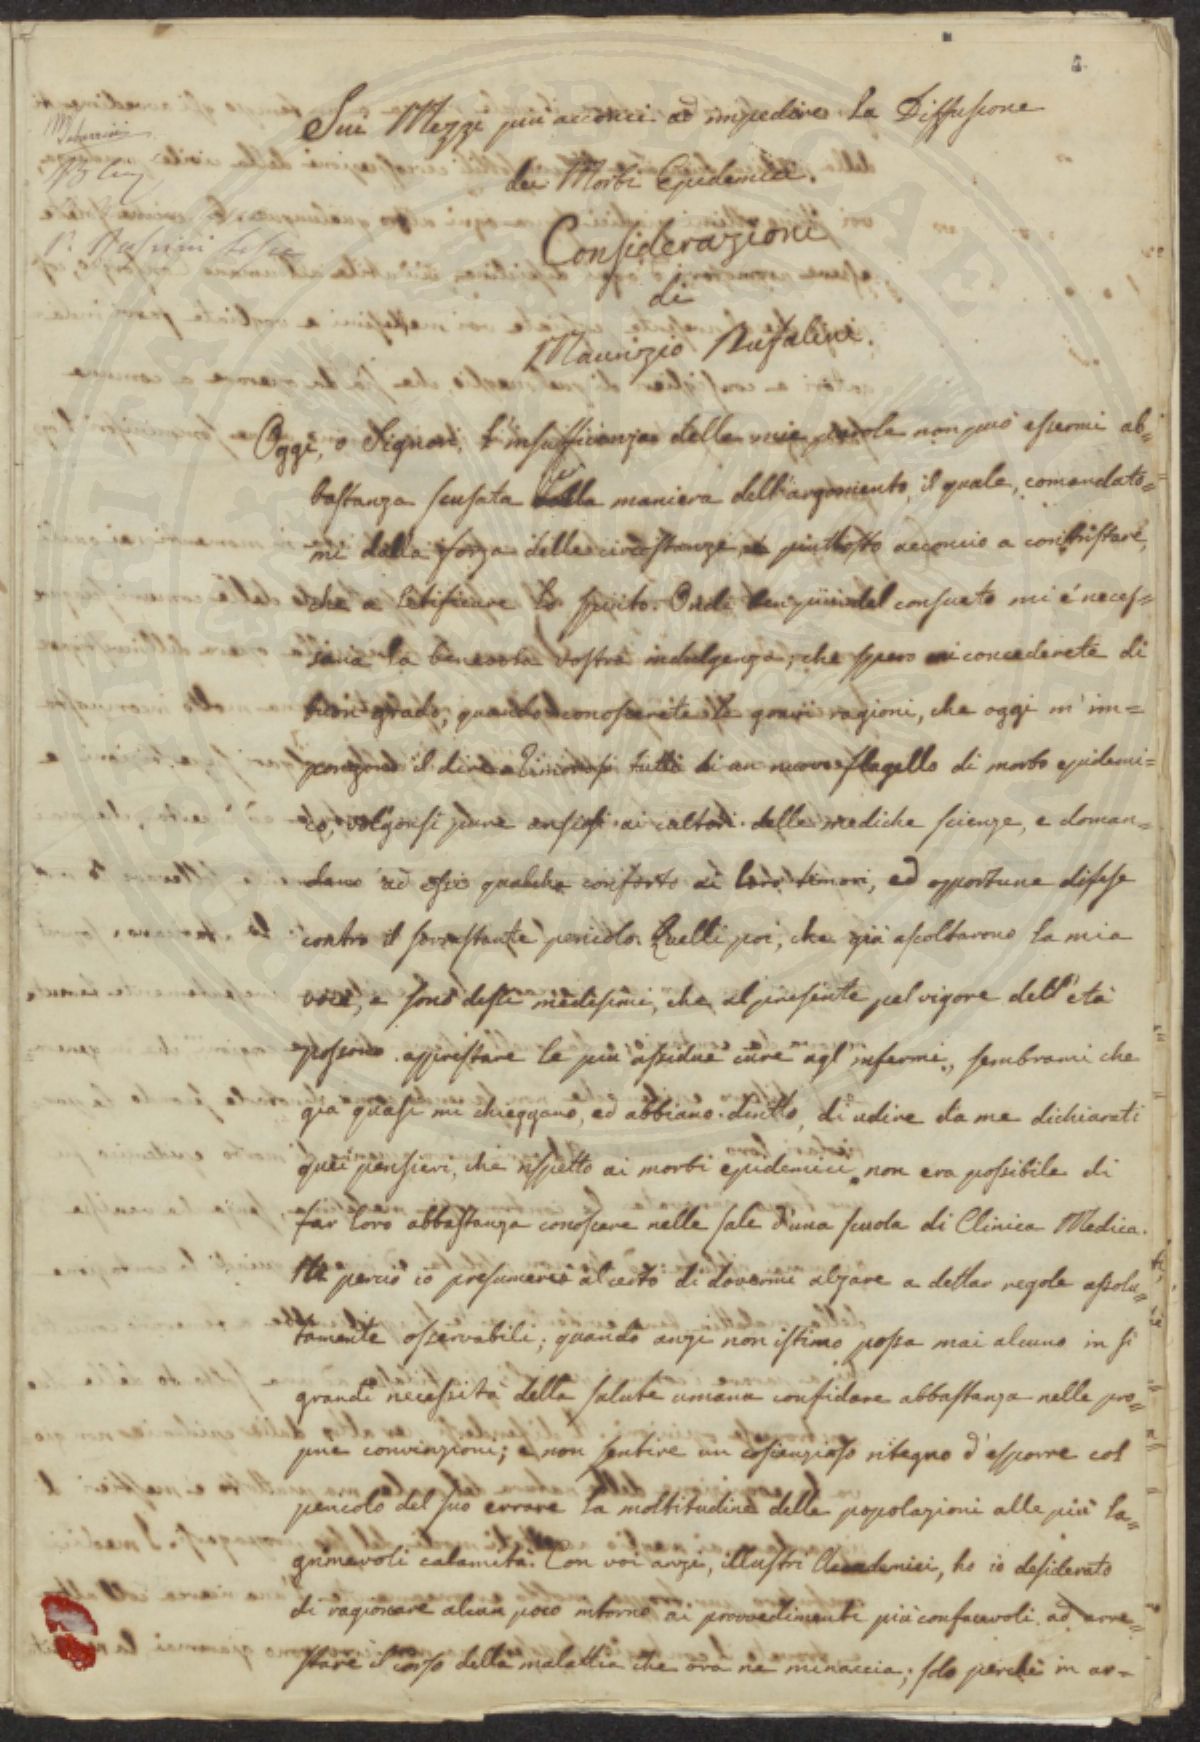 Sui Mezzi più acconci ad impedire la Diffusione
dei Morbi Epidemici.
Considerazioni
di
Maurizio Bufalini.
Oggi, o Signori, l'insufficienza delle mie parole non può essermi ab=
bastanza scusata dalla maniera dell'argomento, il quale, comandato=
mi dalla forza delle circostanze, è piuttosto acconcio a contristare,
che a letificare lo spirito. Onde ben più del consueto mi è neces=
saria la benevola vostra indulgenza, che spero mi concederete di
buon grado, quando conoscerete le gravi ragioni, che oggi m'im=
pongono il dire. Timorosi tutti di un nuovo flagello di morbo epidemi=
co, volgonsi pure ansiosi ai cultori delle mediche scienze, e doman=
dano ad essi qualche conforto ai loro timori, ed opportune difese
contro il sovrastante pericolo. Quelli poi, che già ascoltarono la mia
voce, e sono dessi medesimi, che al presente pel vigore dell'età
possono apprestare le più assidue cure agl'infermi, sembrami che
già quasi mi chieggano, ed abbiano diritto, di udire da me dichiarati
quei pensieri, che rispetto ai morbi epidemici non era possibile di
far loro abbastanza conoscere nelle sale d'una scuola di Clinica Medica.
Nè perciò io presumerei al certo di dovermi alzare a dettar regole assolu=
tamente osservabili; quando anzi non istimo possa mai alcuno in sì
grandi necessità della salute umana confidare abbastanza nelle pro=
prie convinzioni; e non sentire un coscienzioso ritegno d'esporre col
pericolo del suo errare la moltitudine delle popolazioni alle più la=
grimevoli calamità. Con voi anzi, illustri Accademici, ho io desiderato
di ragionare alcun poco intorno ai provvedimenti più confacevoli ad arre=
stare il corso della malattia che ora ne minaccia; solo perchè in ar=